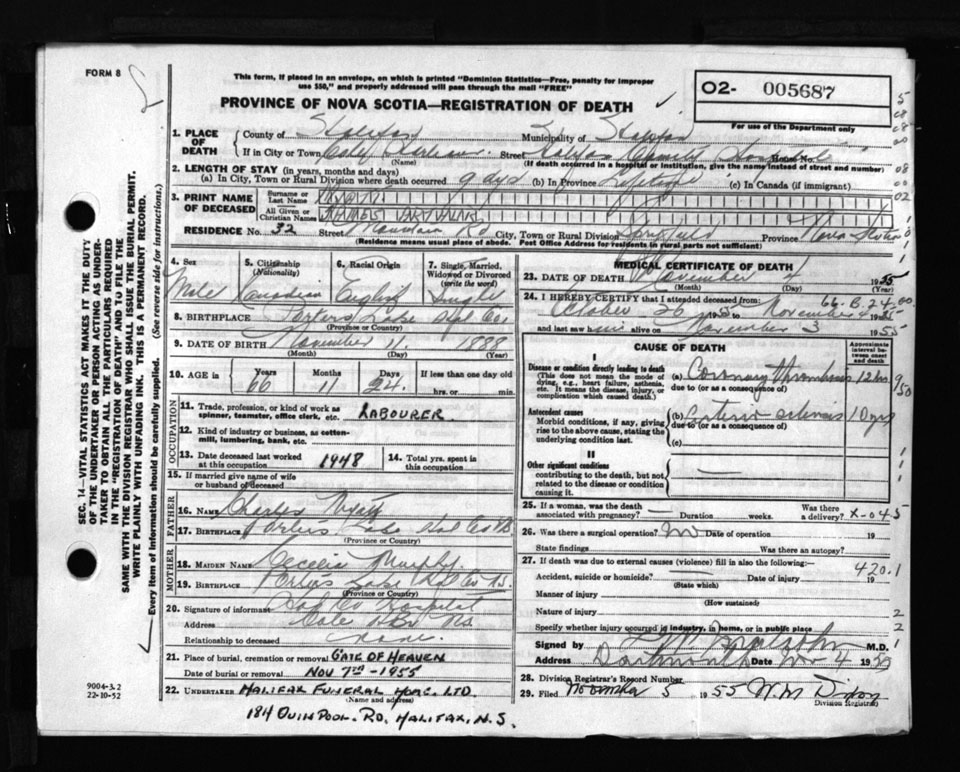 FORM 8
This form, if placed in an envelope, on which is printed "Dominion Statistics—Free, penalty for improper
use $50," and properly addressed will pass through the mail "FREE"
PROVINCE OF NOVA SCOTIA—REGISTRATION OF DEATH
O2- 005687
For use of the Department only
1. PLACE OF DEATH
County of Halifax Municipality of Halifax
If in City or Town Cole Harbour Street Halifax County Hospital House No.
(Name) (If death occurred in a hospital or institution, give the name instead of street and number)
2. LENGTH OF STAY (in years, months and days)
(a) In City, Town or Rural Division where death occurred 9 days (b) In Province Lifetime (c) In Canada (if immigrant)
3. PRINT NAME OF DECEASED
Surname or Last Name
All Given or Christian Names JAMES
RESIDENCE No. 32 Street Mountain Rd City, Town or Rural Division Province Nova Scotia
(Residence means usual place of abode. Post Office Address for residents in rural parts not sufficient)
4. Sex
5. Citizenship (Nationality)
6. Racial Origin
7. Single, Married, Widowed or Divorced (write the word)
Male Canadian English Single
8. BIRTHPLACE Porters Lake Hfx Co.
(Province or Country)
9. DATE OF BIRTH November 11. 1888
(Month) (Day) (Year)
10. AGE in Years Months Days If less than one day old
66 11 24. hrs. or min.
OCCUPATION
11. Trade, profession, or kind of work as spinner, teamster, office clerk, etc. LABOURER
12. Kind of industry or business, as cotton-mill, lumbering, bank, etc.
13. Date deceased last worked at this occupation 1948
14. Total yrs. spent in this occupation
15. If married give name of wife or husband of deceased
FATHER
16. Name Charles
17. Birthplace Porters Lake Hal Co NS
(Province or Country)
MOTHER
18. MAIDEN NAME Cecelia Murphy.
19. BIRTHPLACE Porters Lake Hal Co NS.
(Province or Country)
20. Signature of informant Hal Co Hospital
Address Cole Hbr NS
Relationship to deceased none.
21. Place of burial, cremation or removal GATE OF HEAVEN
Date of burial or removal NOV 7TH - 1955
22. UNDERTAKER HALIFAX FUNERAL HOME. LTD.
(Name and address)
184 QUINPOOL. RD, HALIFAX, N.S.
9004-3.2
22-10-52
MEDICAL CERTIFICATE OF DEATH
23. DATE OF DEATH November 4 1955
(Month) (Day) (Year)
66.8.24.00
24. I HEREBY CERTIFY that I attended deceased from:
October 26 1955 to November 4 1955
and last saw him alive on November 3 1955
CAUSE OF DEATH
Approximate interval between onset and death
I
Disease or condition directly leading to death
(This does not mean the mode of dying, e.g., heart failure, asthenia, etc. It means the disease, injury, or complication which caused death.)
(a) Coronary thrombosis 12 hrs
due to (or as a consequence of)
Antecedent causes
Morbid conditions, if any, giving rise to the above cause, stating the underlying condition last.
(b) Arterio sclerosis 10 yrs
due to (or as a consequence of)
(c)
II
Other significant conditions
contributing to the death, but not related to the disease or condition causing it.
25. If a woman, was the death associated with pregnancy? — Duration weeks. Was there a delivery? X-045
26. Was there a surgical operation? No Date of operation 19
State findings Was there an autopsy?
27. If death was due to external causes (violence) fill in also the following: 420.1
Accident, suicide or homicide? Date of injury 19
(State which)
Manner of injury
(How sustained)
Nature of injury
Specify whether injury occurred in industry, in home, or in public place
Signed by M.D.
Address Dartmouth Date Nov 4 1955
28. Division Registrar's Record Number
29. Filed November 5 1955 W. M. Dixon
Division Registrar
SEC. 14—VITAL STATISTICS ACT MAKES IT THE DUTY
OF THE UNDERTAKER OR PERSON ACTING AS UNDER-
TAKER TO OBTAIN ALL THE PARTICULARS REQUIRED
IN THE "REGISTRATION OF DEATH" AND TO FILE THE
SAME WITH THE DIVISION REGISTRAR WHO SHALL ISSUE THE BURIAL PERMIT.
WRITE PLAINLY WITH UNFADING INK. THIS IS A PERMANENT RECORD.
Every item of information should be carefully supplied. (See reverse side for instructions.)